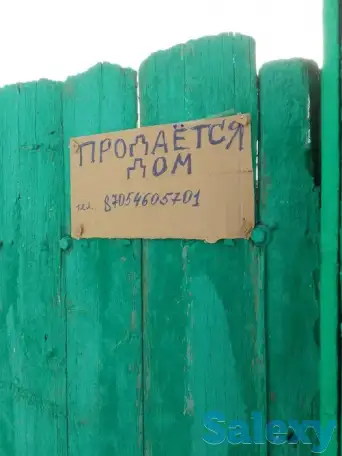 ПРОДАЁТСЯ
ДОМ
тел. 87054605701
Salexy